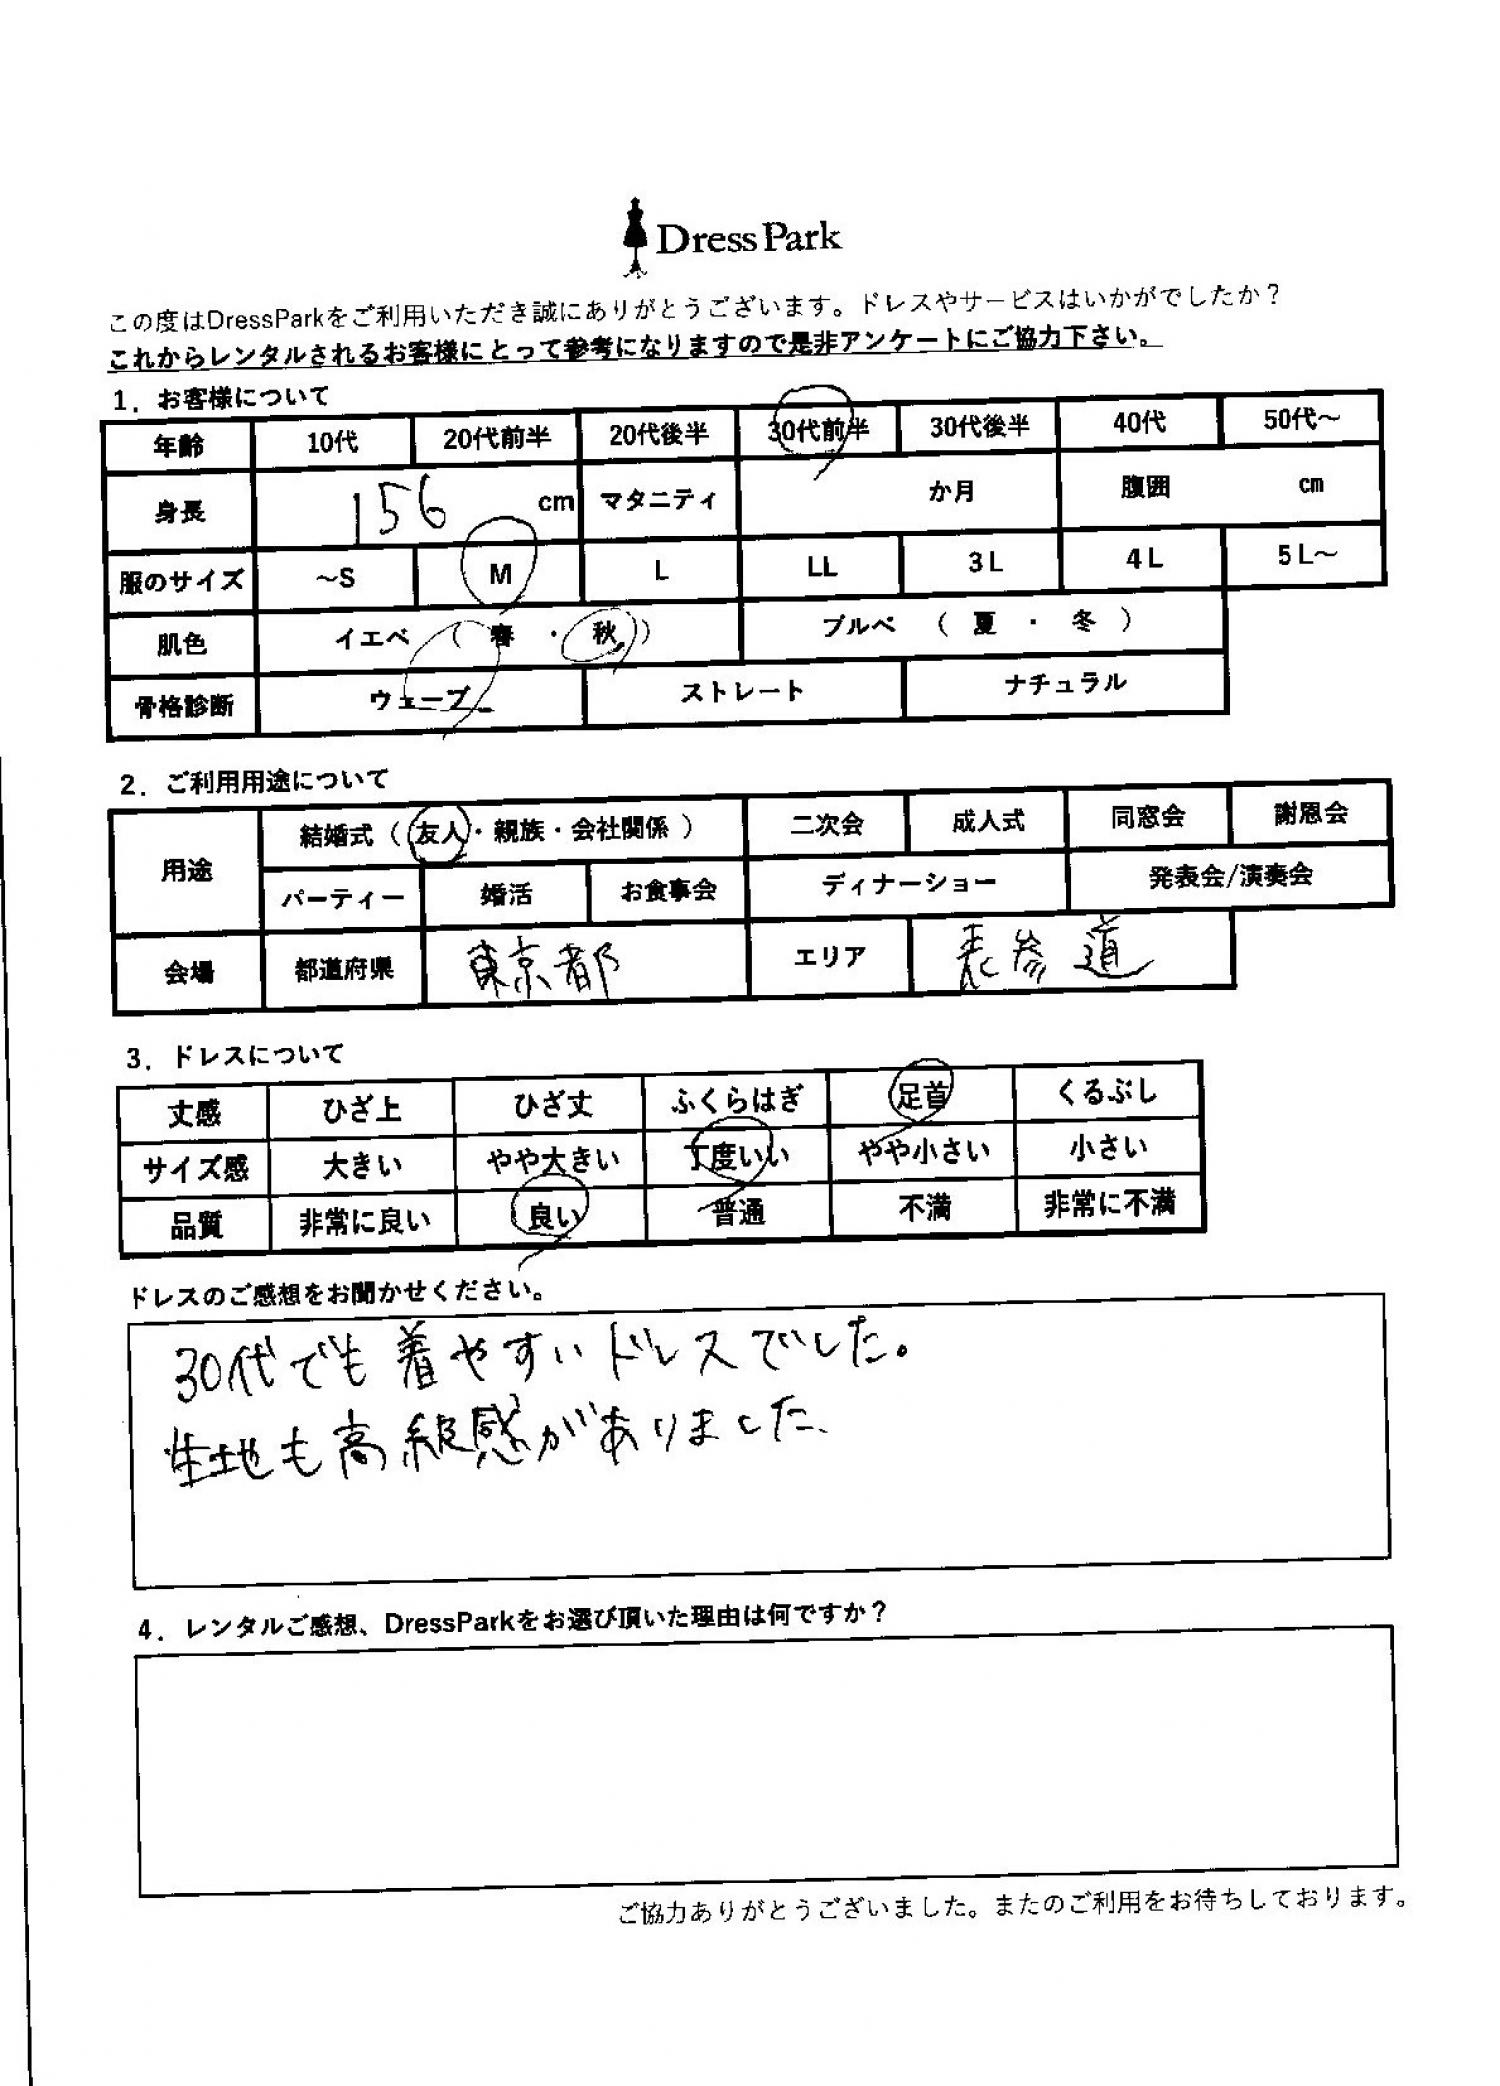 Dress Park
この度はDressParkをご利用いただき誠にありがとうございます。ドレスやサービスはいかがでしたか？
これからレンタルされるお客様にとって参考になりますので是非アンケートにご協力下さい。
1．お客様について
年齢 10代 20代前半 20代後半 30代前半 30代後半 40代 50代～
身長 156 cm マタニティ か月 腹囲 cm
服のサイズ ～S M L LL 3L 4L 5L～
肌色 イエベ （ 春 ・ 秋 ） ブルベ （ 夏 ・ 冬 ）
骨格診断 ウェーブ ストレート ナチュラル
2．ご利用用途について
用途 結婚式（ 友人・親族・会社関係 ） 二次会 成人式 同窓会 謝恩会
パーティー 婚活 お食事会 ディナーショー 発表会/演奏会
会場 都道府県 東京都 エリア 表参道
3．ドレスについて
丈感 ひざ上 ひざ丈 ふくらはぎ 足首 くるぶし
サイズ感 大きい やや大きい 丁度いい やや小さい 小さい
品質 非常に良い 良い 普通 不満 非常に不満
ドレスのご感想をお聞かせください。
30代でも着やすいドレスでした。
生地も高級感がありました、
4．レンタルご感想、DressParkをお選び頂いた理由は何ですか？
ご協力ありがとうございました。またのご利用をお待ちしております。